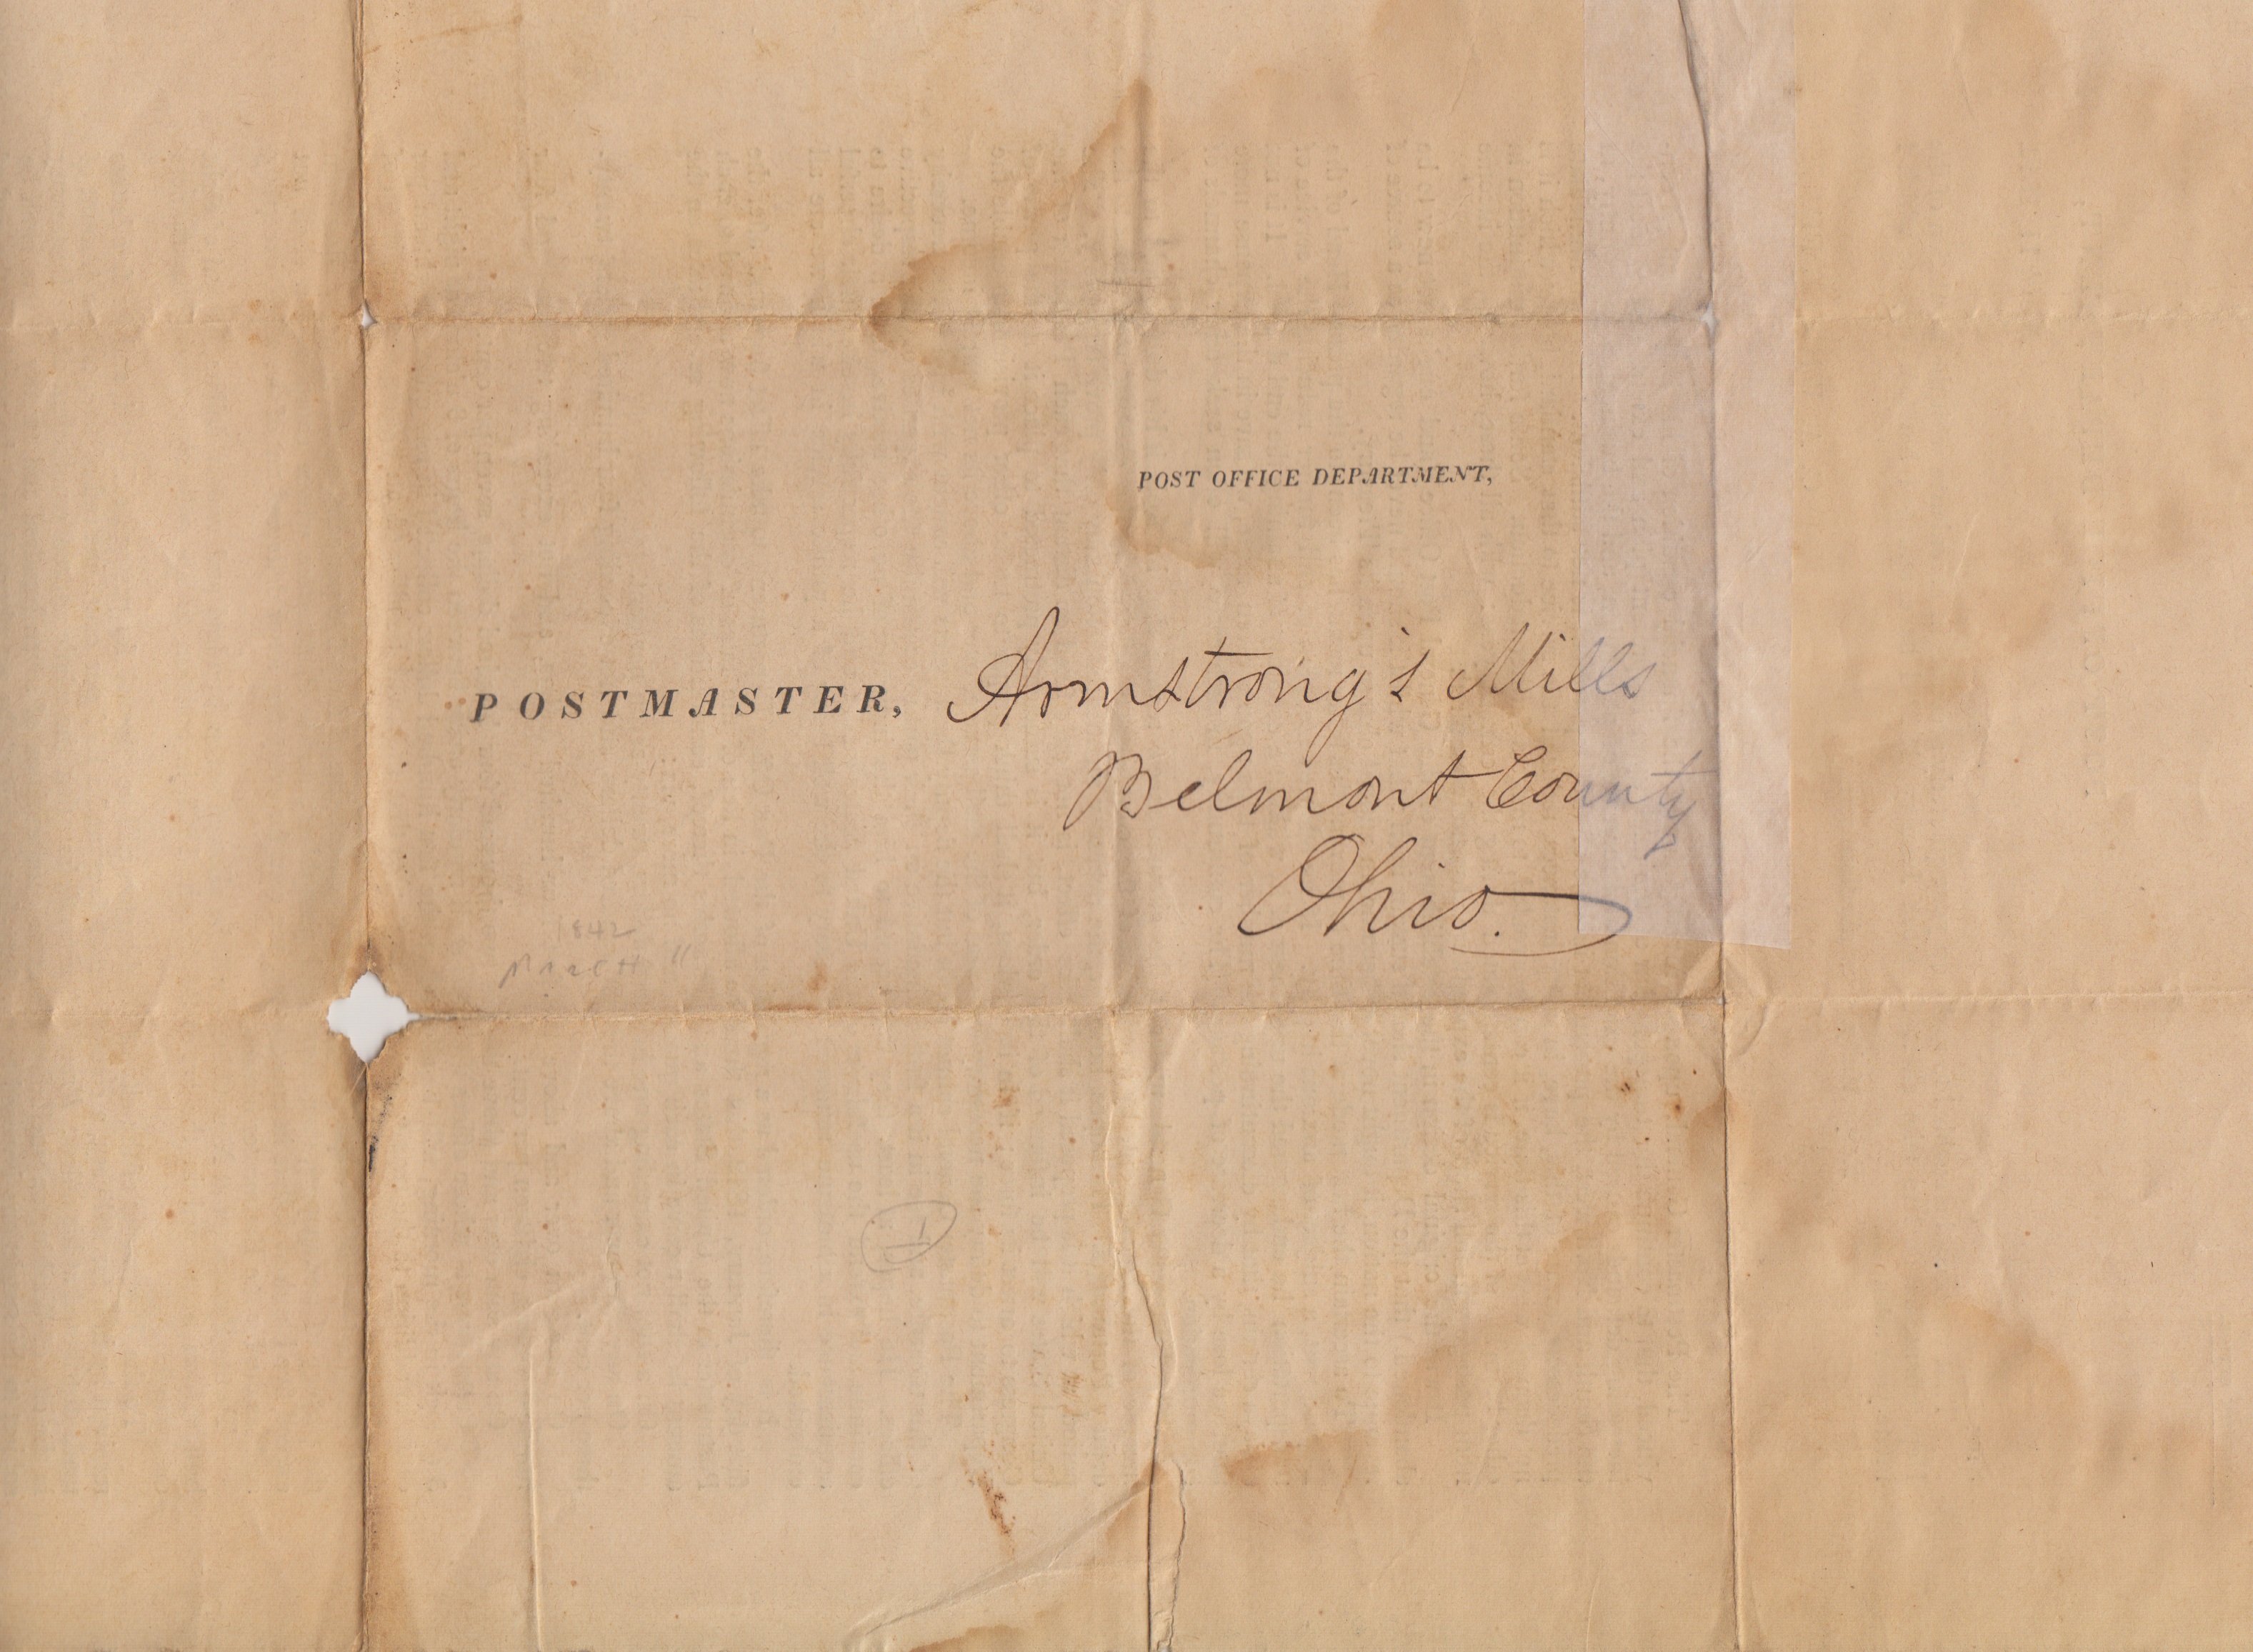 POST OFFICE DEPARTMENT,
POSTMASTER, Armstrong's Mills
Belmont County
Ohio.
1842
MARCH 11